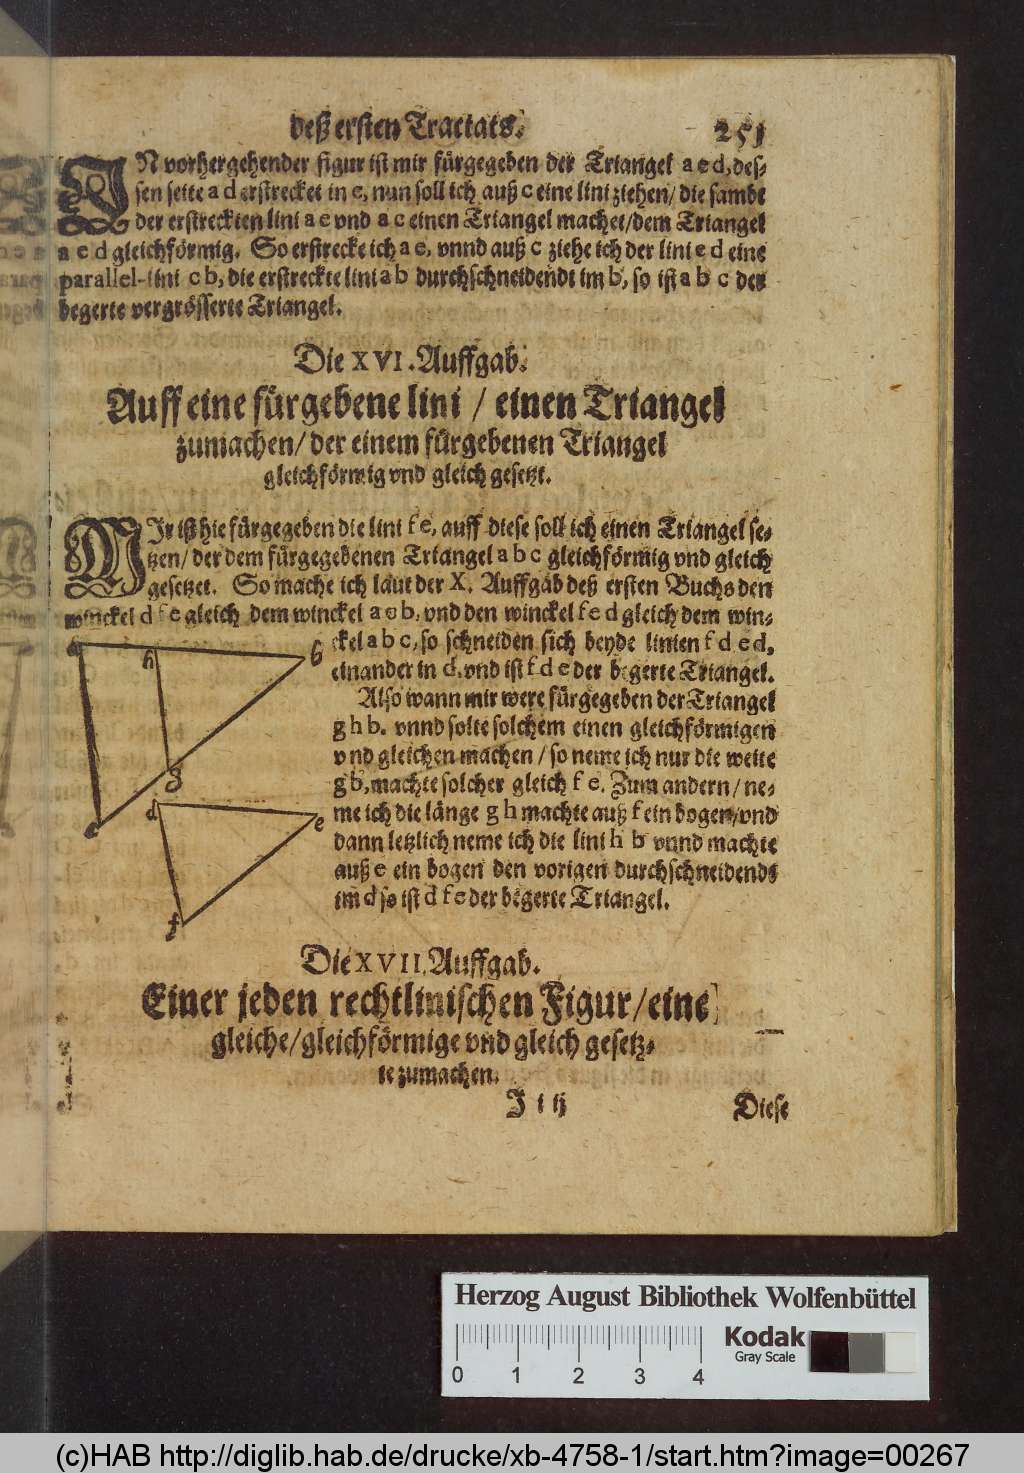 deß ersten Tractats. 251
IN vorhergehender figur ist mir fürgegeben der Triangel a e d, des-
sen seite a d erstrecket in e, nun soll ich auß c eine lini ziehen / die sambt
der erstreckten lini a e vnd a c einen Triangel machet / dem Triangel
a e d gleichförmig. So erstrecke ich a e, vnnd auß c ziehe ich der lini e d eine
parallel-lini c b, die erstreckte lini a b durchschneidendt im b, so ist a b c der
begerte vergrösserte Triangel.
Die XVI. Auffgab.
Auff eine fürgebene lini / einen Triangel
zumachen / der einem fürgebenen Triangel
gleichförmig vnd gleich gesetzt.
MIr ist hie fürgegeben die lini f e, auff diese soll ich einen Triangel se-
tzen / der dem fürgegebenen Triangel a b c gleichförmig vnd gleich
gesetzet. So mache ich laut der X. Auffgab deß ersten Buchs den
winckel d f e gleich dem winckel a c b, vnd den winckel f e d gleich dem win-
ckel a b c, so schneiden sich beyde linien f d e d,
einander in d, vnd ist f d e der begerte Triangel.
Also wann mir were fürgegeben der Triangel
g h b. vnnd solte solchem einen gleichförmigen
vnd gleichen machen / so neme ich nur die weite
g b, machte solcher gleich f e. Zum andern / ne-
me ich die länge g h machte auß f ein bogen / vnd
dann letzlich neme ich die lini h b vnnd machte
auß e ein bogen den vorigen durchschneidendt
im d so ist d f e der begerte Triangel.
a h b
g
c
d e
f
Die XVII. Auffgab.
Einer jeden rechtlinischen Figur / eine
gleiche / gleichförmige vnd gleich gesetz-
te zumachen.
I i ij Diese
Herzog August Bibliothek Wolfenbüttel
0 1 2 3 4
Kodak
Gray Scale
(c)HAB http://diglib.hab.de/drucke/xb-4758-1/start.htm?image=00267